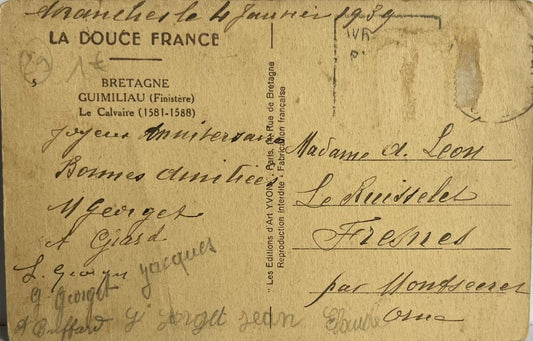 Avranches le 4 Janvier 1939
LA DOUCE FRANCE
1€
BRETAGNE
GUIMILIAU (Finistère)
Le Calvaire (1581-1588)
Joyeux Anniversaire
Bonnes Amitiées
M Georget
A Girard
L. Georget
G Georget Jacques
Buffard G Georget Jean Claude
"Les Editions d'Art YVON" Paris, Rue de Bretagne
Reproduction interdite - Fabrication française
Madame A. Leon
Le Ruisselet
Fresnes
par Montsecret
Orne